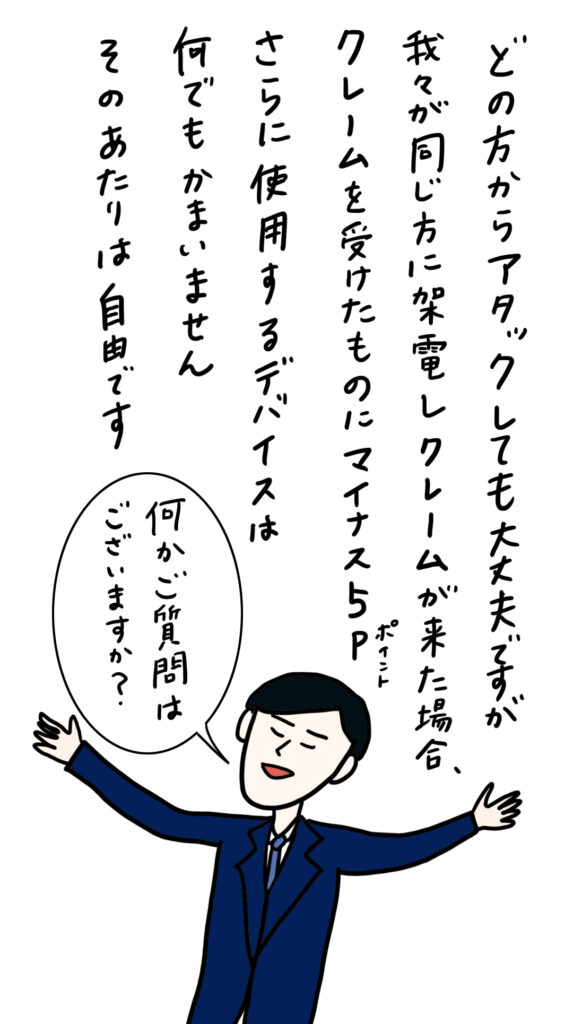 どの方からアタックしても大丈夫ですが
我々が同じ方に架電しクレームが来た場合、
クレームを受けたものにマイナス5P
ポイント
さらに使用するデバイスは
何でもかまいません
そのあたりは自由です
何かご質問は
ございますか?